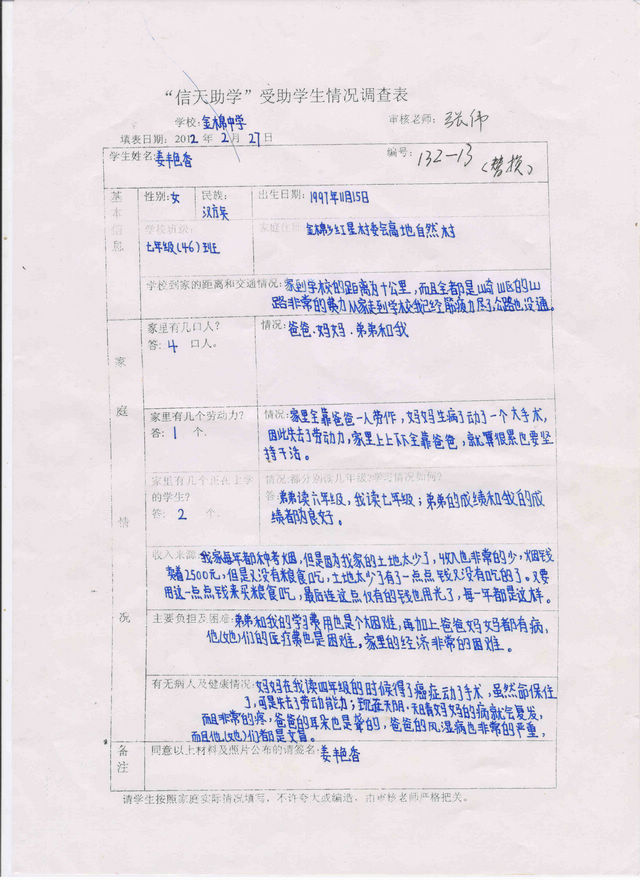 “信天助学”受助学生情况调查表
学校：金棉中学
审核老师：张伟
填表日期：2012年2月27日
学生姓名：姜艳香
编号：132-13（替换）
基本信息
性别：女
民族：汉族
出生日期：1997年11月15日
学校班级：七年级(46)班
家庭住址：金棉乡红星村委会高地自然村
学校到家的距离和交通情况：家到学校的距离为十公里，而且全都是崎山区的山
路非常的费力从家走到学校我已经筋疲力尽了公路也没通。
家庭情况
家里有几口人？
答：4 口人。
情况：爸爸、妈妈、弟弟和我
家里有几个劳动力？
答：1 个．
情况：家里全靠爸爸一人劳作，妈妈生病了动了一个大手术，
因此失去了劳动力，家里上上下下全靠爸爸，就算很累也要坚
持干活。
家里有几个正在上学
的学生？
答：2 个．
情况：都分别读几年级?学习情况如何？
答：弟弟读六年级，我读七年级；弟弟的成绩和我的成
绩都为良好。
收入来源：我家每年都种考烟，但是因为我家的土地太少了，收入也非常的少，烟钱
卖着2500元，但是又没有粮食吃，土地太少了有了一点点钱又没有吃的了。又要
用这一点点钱来买粮食吃，最后连这点仅有的钱也用光了，每一年都是这样。
主要负担及困难：弟弟和我的学习费用也是个大困难，再加上爸爸妈妈都有病，
他(她)们的医疗费也是困难，家里的经济非常的困难。
有无病人及健康情况：妈妈在我读四年级的时候得了癌症动了手术，虽然命保住
了，可是失去了劳动能力；到现在天阴，妈妈的病就会复发，
而且非常的疼，爸爸的耳朵也是聋的，爸爸的风湿病也非常的严重，
而且他(她)们都是文盲。
备注
同意以上材料及照片公布的请签名：姜艳香
请学生按照家庭实际情况填写，不许夸大或编造，由审核老师严格把关。